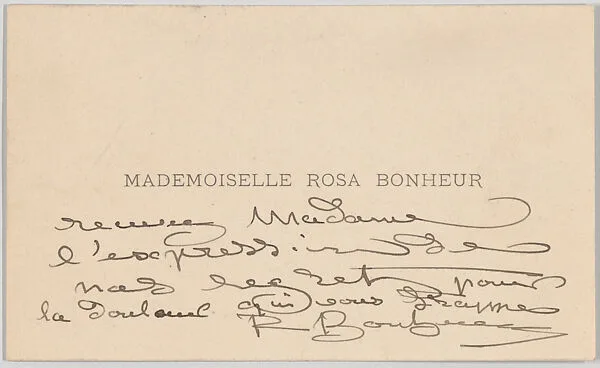 MADEMOISELLE ROSA BONHEUR
recevez Madame
l'expression de
mes regrets pour
la douleur qui vous frappe
R Bonheur